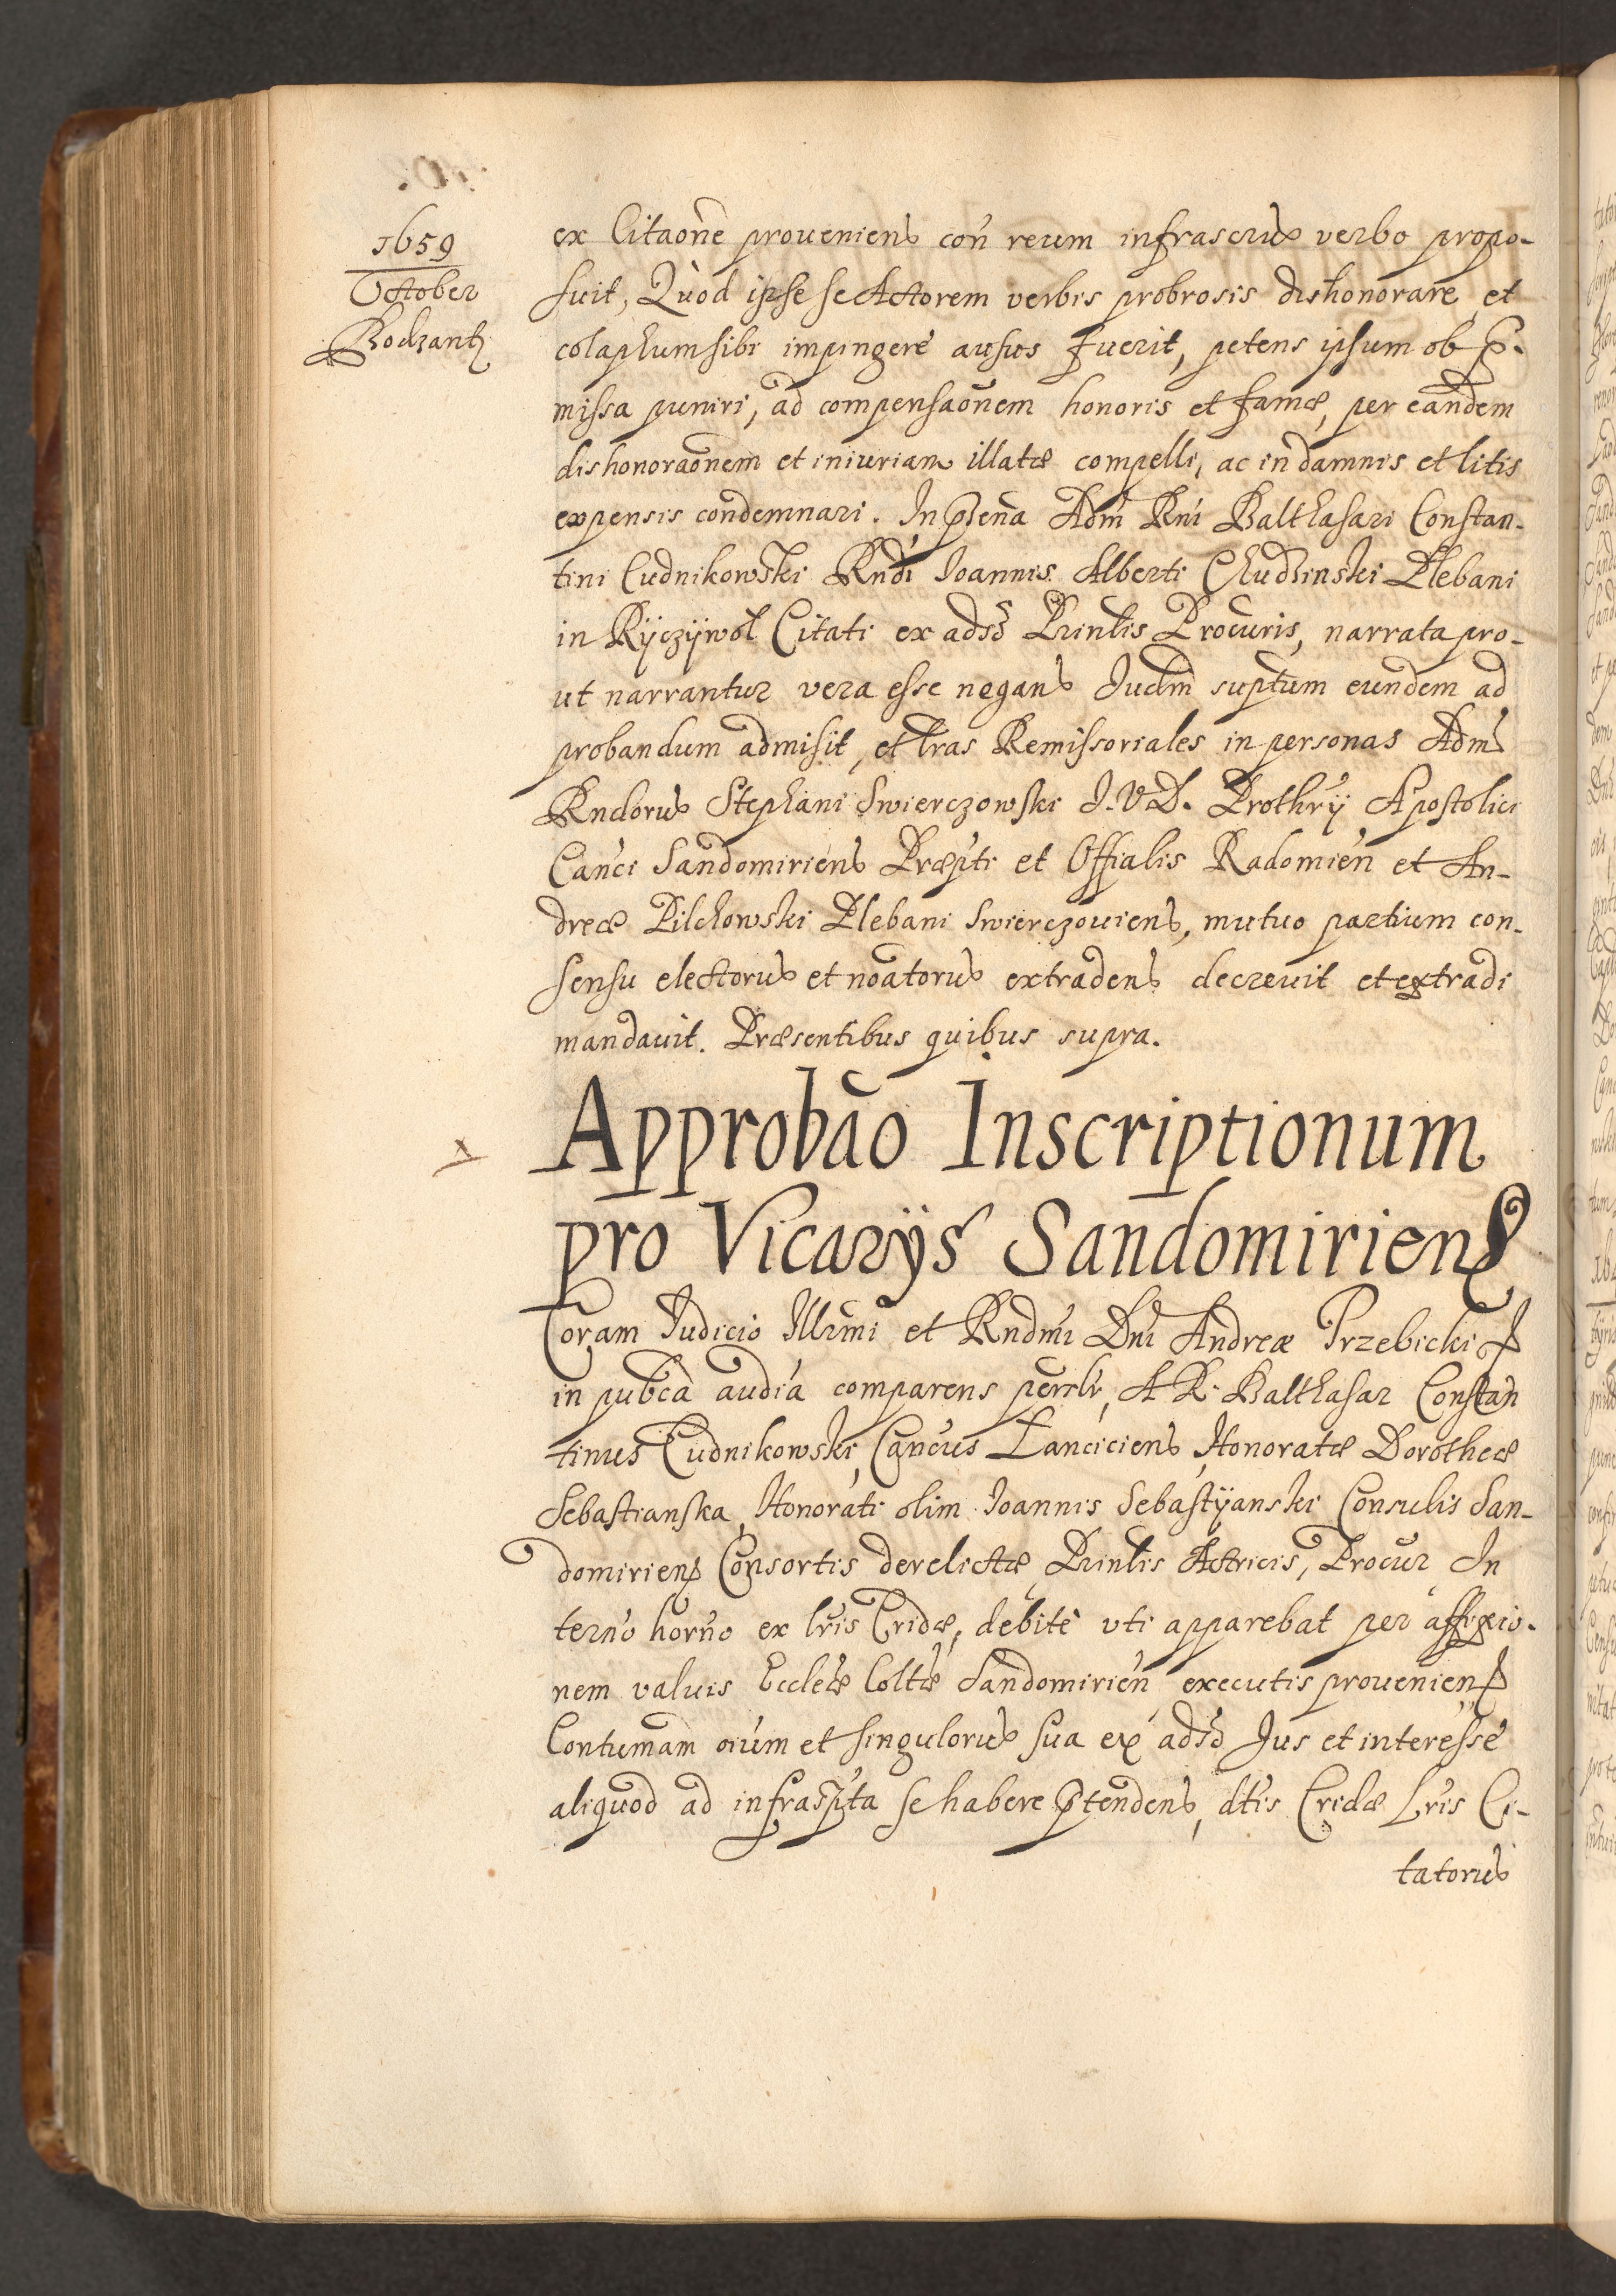 1659
October
Bodzantz
ex Citaõne proueniens coñ reum infrascrus verbo propo-
suit, Quod ipse se Actorem verbis probrosis dishonorare, et
colaphum sibi impingere ausus fuerit, petens ipsum ob p̃-
missa puniri, ad compensaõnem honoris et famæ, per eandem
dishonoraõnem et iniuriam illatæ compelli, ac in damnis et litis
expensis condemnari. In p̃sena Adm Rni Balthasari Constan-
tini Cudnikowski Rndi Ioannis Alberti Chudzinski Plebani
in Ryczywol Citati ex adso Prinlis Procuris, narrata pro-
ut narrantur vera esse negans Iudm suptum eundem ad
probandum admisit, et lras Remissoriales in personas Adm
Rndorus Stephani Swierczowski I. V. D. Prothrÿ Apostolici
Canci Sandomiriens Præpti et Offialis Radomien et An-
dreæ Pilchowski Plebani Swierczouiens, mutuo partium con-
sensu electorus et noatorus extradens decreuit et extradi
mandauit. Præsentibus quibus supra.
Approbão Inscriptionum
pro Vicarÿs Sandomiriens
Coram Iudicio Illrmi et Rndmi Dni Andreæ Trzebicki
in pubca audia comparens persolr, A R. Balthasar Constan
tinus Cudnikowski, Cancus Lanciciens Honoratæ Dorotheæ
Sebastianska, Honorati olim Ioannis Sebastÿanski Consulis San-
domiriens Consortis derelictæ Prinlis Actricis, Procur In
terno horno ex lris Cridæ, debite vti apparebat per affixio-
nem valuis Eccleæ Coltæ Sandomirien executis proueniens
Contumam oium et singulorus sua ex adso Ius et interesse
aliquod ad infrascpta se habere p̃tendens, dtis Cridæ Lris Ci-
tatorus